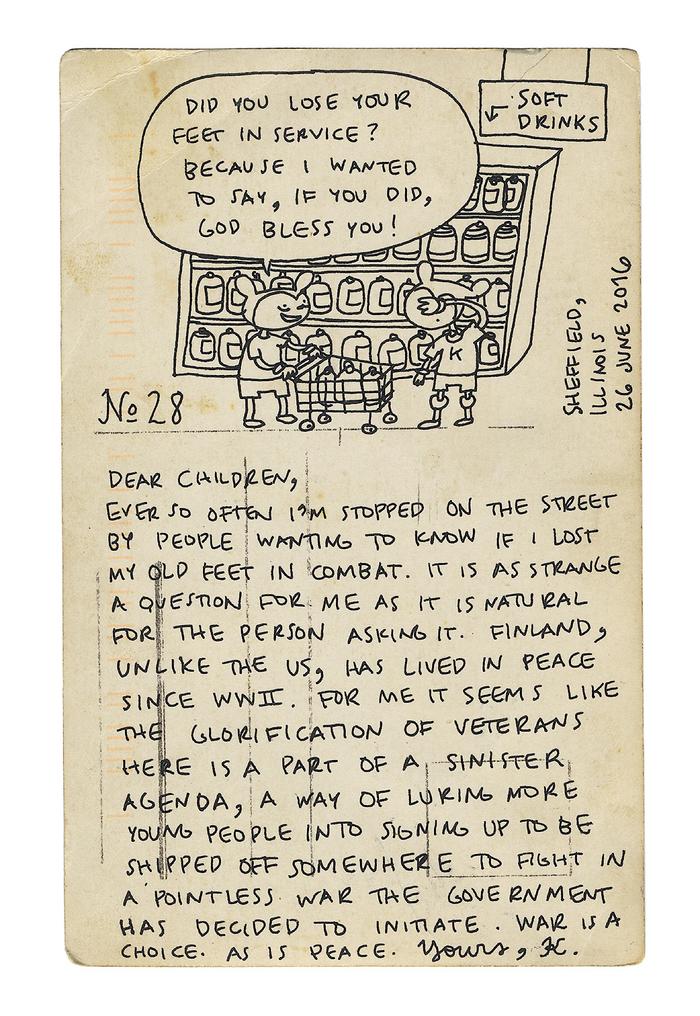 SOFT
DRINKS
DID YOU LOSE YOUR
FEET IN SERVICE?
BECAUSE I WANTED
TO SAY, IF YOU DID,
GOD BLESS YOU!
K
No 28
SHEFFIELD,
ILLINOIS
26 JUNE 2016
DEAR CHILDREN,
EVER SO OFTEN I'M STOPPED ON THE STREET
BY PEOPLE WANTING TO KNOW IF I LOST
MY OLD FEET IN COMBAT. IT IS AS STRANGE
A QUESTION FOR ME AS IT IS NATURAL
FOR THE PERSON ASKING IT. FINLAND,
UNLIKE THE US, HAS LIVED IN PEACE
SINCE WWII. FOR ME IT SEEMS LIKE
THE GLORIFICATION OF VETERANS
HERE IS A PART OF A SINISTER
AGENDA, A WAY OF LURING MORE
YOUNG PEOPLE INTO SIGNING UP TO BE
SHIPPED OFF SOMEWHERE TO FIGHT IN
A POINTLESS WAR THE GOVERNMENT
HAS DECIDED TO INITIATE. WAR IS A
CHOICE. AS IS PEACE. Yours, K.